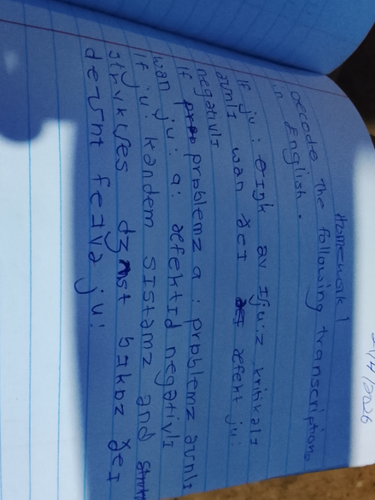 Homework 1
Decode the following transcriptions
n English.
If ju: θɪŋk av ɪʃju:z kritikalɪ
əʊnlɪ wan ðeɪ æfekt ju:
negatɪvlɪ
If prɒblemz a: prɒblemz əʊnlɪ
wan ju: a: æfektɪd negatɪvlɪ
If ju: kandem sɪstamz and
strʌktʃəs dʒʌst bɪkɒz ðeɪ
dəʊnt feɪvə ju: